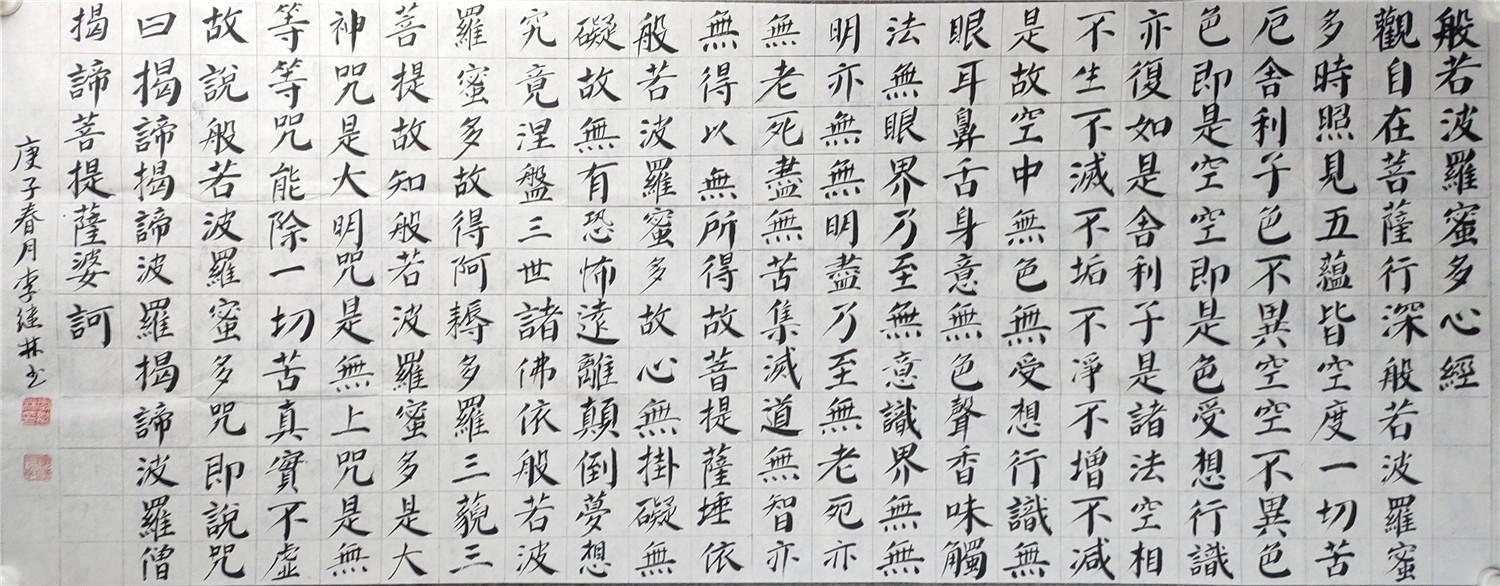 般若波羅蜜多心經
觀自在菩薩行深般若波羅蜜
多時照見五蘊皆空度一切苦
厄舍利子色不異空空不異色
色即是空空即是色受想行識
亦復如是舍利子是諸法空相
不生不滅不垢不淨不增不減
是故空中無色無受想行識無
眼耳鼻舌身意無色聲香味觸
法無眼界乃至無意識界無無
明亦無無明盡乃至無老死亦
無老死盡無苦集滅道無智亦
無得以無所得故菩提薩埵依
般若波羅蜜多故心無掛礙無
礙故無有恐怖遠離顛倒夢想
究竟涅盤三世諸佛依般若波
羅蜜多故得阿耨多羅三藐三
菩提故知般若波羅蜜多是大
神咒是大明咒是無上咒是無
等等咒能除一切苦真實不虛
故說般若波羅蜜多咒即說咒
曰揭諦揭諦波羅揭諦波羅僧
揭諦菩提薩婆訶
庚子春月李继林书